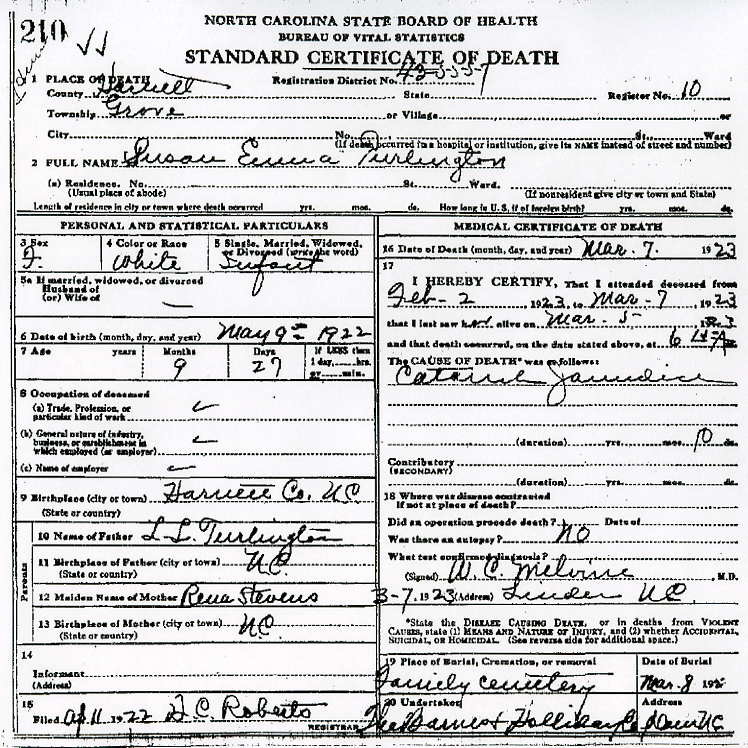 210
NORTH CAROLINA STATE BOARD OF HEALTH
BUREAU OF VITAL STATISTICS
STANDARD CERTIFICATE OF DEATH
1 PLACE OF DEATH
Registration District No. 43-5557
County Harnett State Register No. 10
Township Grove or Village or
City No. St. Ward
(If death occurred in a hospital or institution, give its NAME instead of street and number)
2 FULL NAME Susan Emma Turlington
(a) Residence. No. St. Ward.
(Usual place of abode) (If nonresident give city or town and State)
Length of residence in city or town where death occurred yrs. mos. ds. How long in U.S., if of foreign birth? yrs. mos. ds.
PERSONAL AND STATISTICAL PARTICULARS
3 Sex 4 Color or Race 5 Single, Married, Widowed, or Divorced (write the word)
F. White Infant
5a If married, widowed, or divorced
Husband of
(or) Wife of —
6 Date of birth (month, day, and year) May 9th 1922
7 Age years Months Days If LESS than 1 day, hrs. or min.
9 27
8 Occupation of deceased
(a) Trade, Profession, or
particular kind of work
(b) General nature of industry,
business, or establishment in
which employed (or employer)
(c) Name of employer
9 Birthplace (city or town) Harnett Co. N.C.
(State or country)
Parents
10 Name of Father L. L. Turlington
11 Birthplace of Father (city or town) N.C.
(State or country)
12 Maiden Name of Mother Rena Stevens
13 Birthplace of Mother (city or town) N.C.
(State or country)
14
Informant
(Address)
15
Filed Apl 11 1922 H C Roberts
REGISTRAR
MEDICAL CERTIFICATE OF DEATH
16 Date of Death (month, day, and year) Mar. 7. 1923
17
I HEREBY CERTIFY, That I attended deceased from
Feb - 2 1923 to Mar - 7 1923
that I last saw her alive on Mar - 5 - 1923
and that death occurred, on the date stated above, at 6
The CAUSE OF DEATH* was as follows:
Jaundice
(duration) yrs. mos. 10 ds.
Contributory
(SECONDARY)
(duration) yrs. mos. ds.
18 Where was disease contracted
if not at place of death?
Did an operation precede death? Date of
Was there an autopsy? NO
What test confirmed diagnosis?
(Signed) W. C. Melvine M.D.
3-7, 1923 (Address) Linden N.C.
*State the DISEASE CAUSING DEATH, or in deaths from VIOLENT
CAUSES, state (1) MEANS AND NATURE OF INJURY, and (2) whether ACCIDENTAL,
SUICIDAL, OR HOMICIDAL. (See reverse side for additional space.)
19 Place of Burial, Cremation, or removal Date of Burial
Family cemetery Mar. 8 192
20 Undertaker Address
The Barnes & Holliday Co Dunn N.C.